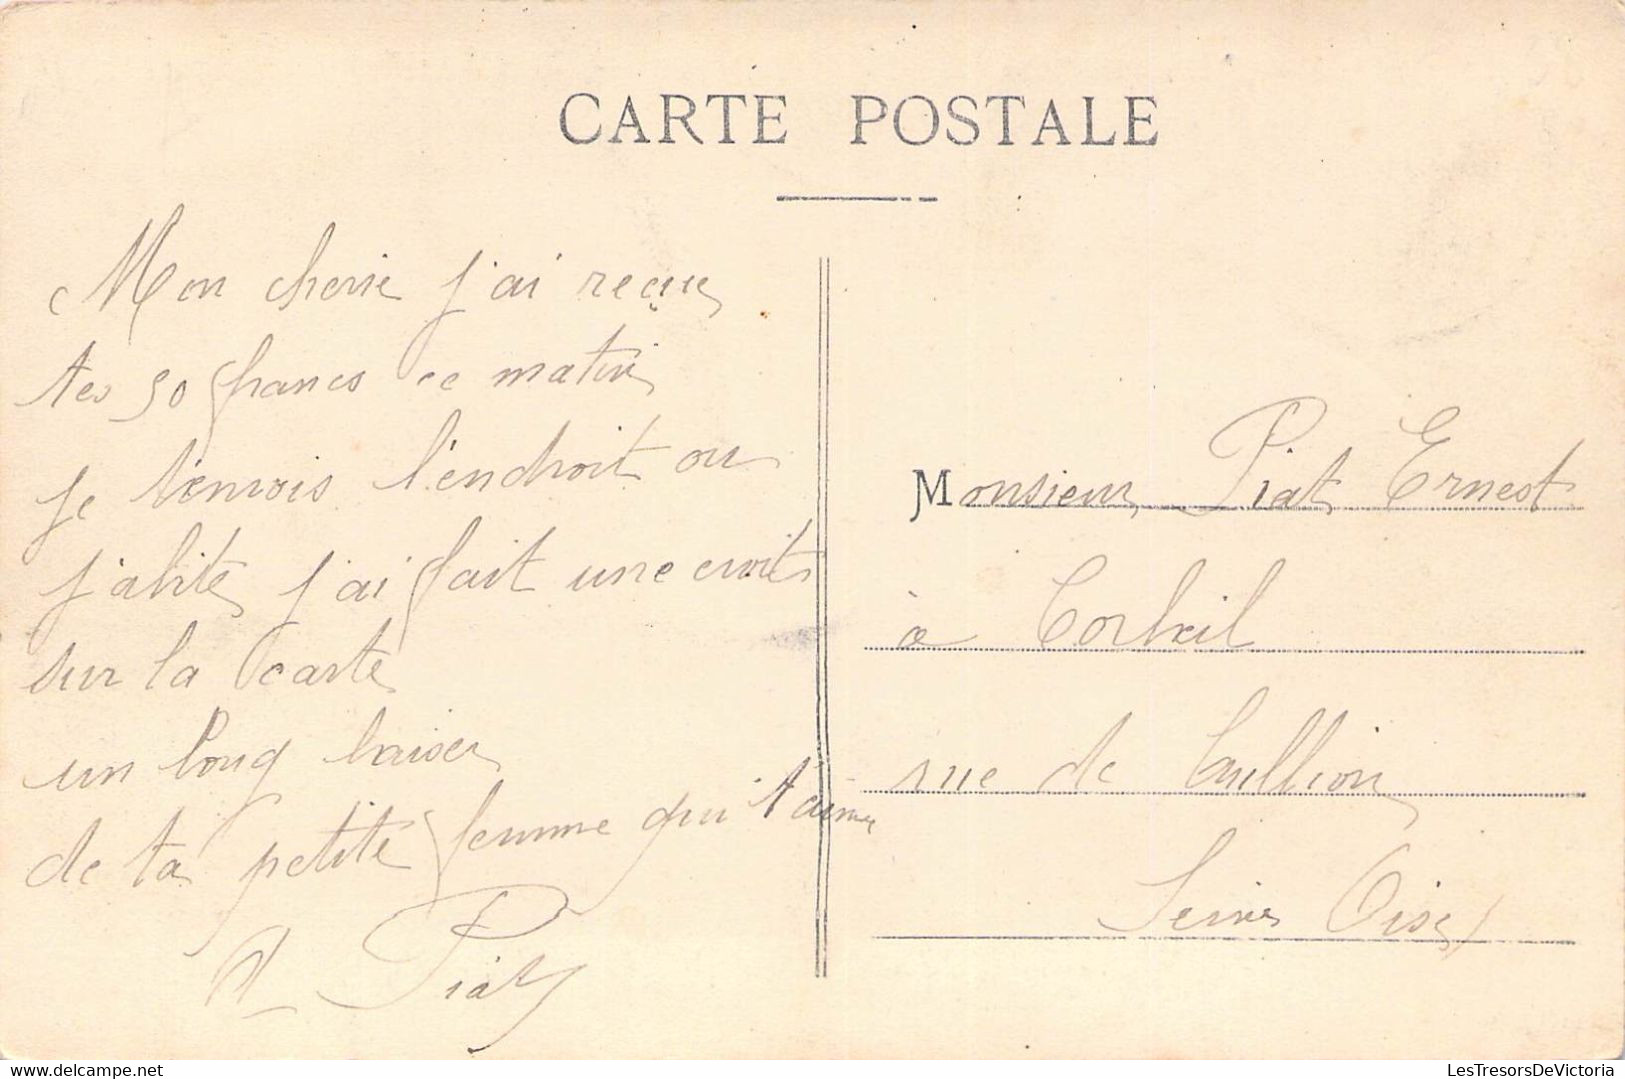 CARTE POSTALE
Mon cherie j'ai reçue
tes 50 francs ce matin
je t'envois l'endroit ou
j'abite j'ai fait une croit
sur la carte
un long baiser
de ta petite femme qui t'aime
Piat
Monsieur Piat Ernest
à Corbeil
rue de
Seine Oise
LesTresorsDeVictoria